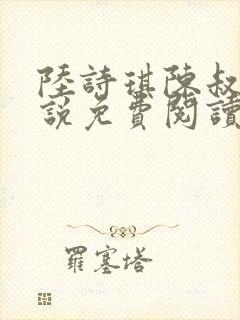 陸詩琪陳叔
說免費閱讀
羅塞塔